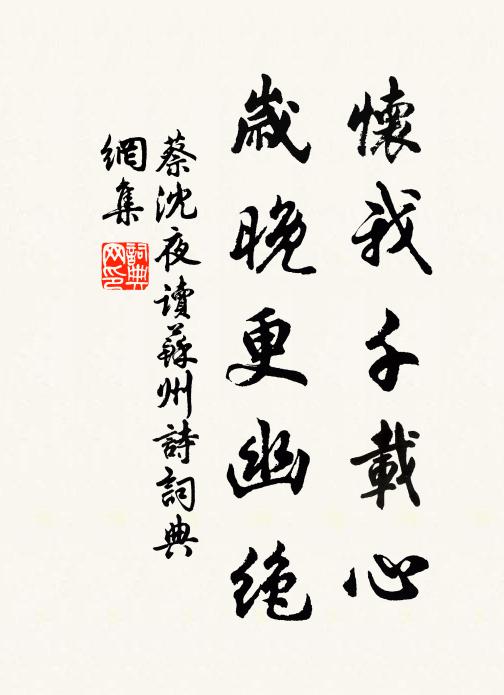 懷我千載心
歲晚更幽絶
蔡沈夜讀蘇州詩詞典
網集
詞典
网印